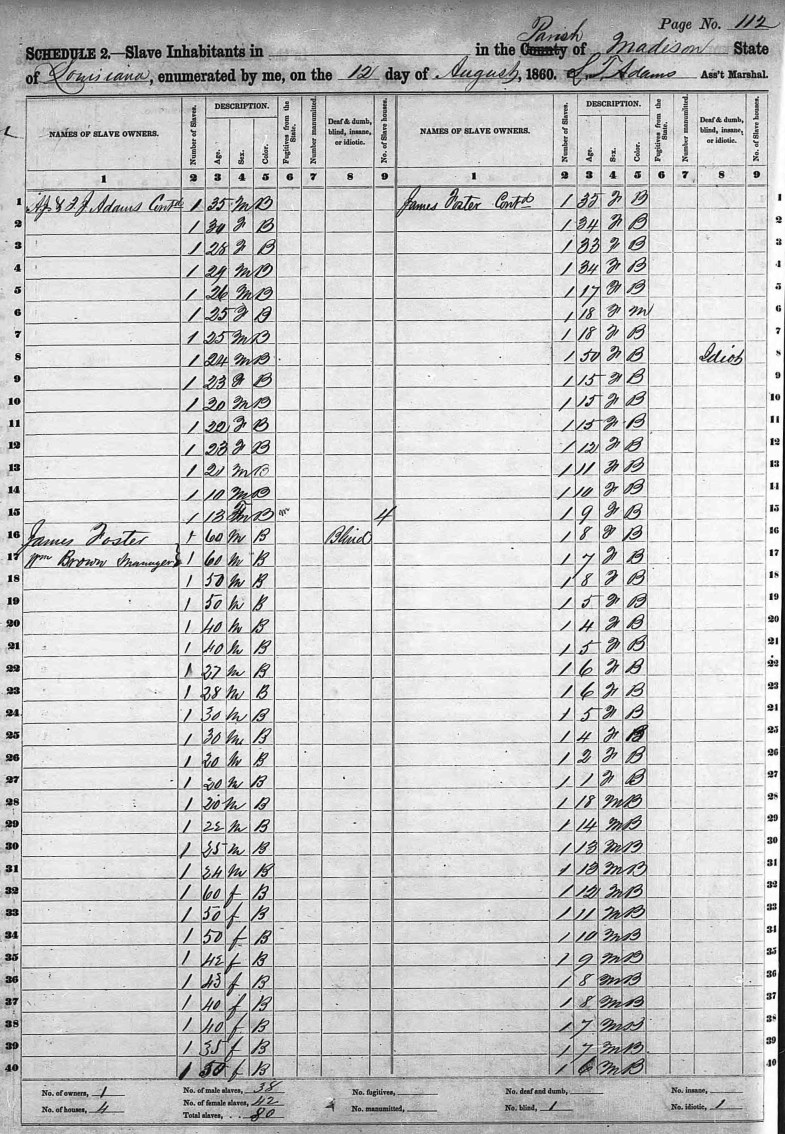 Page No. 112
SCHEDULE 2.—Slave Inhabitants in in the County Parish of Madison State
of Louisiana, enumerated by me, on the 12 day of August, 1860. Adams Ass't Marshal.
NAMES OF SLAVE OWNERS. Number of Slaves. DESCRIPTION. Age. Sex. Color. Fugitives from the State. Number manumitted. Deaf & dumb, blind, insane, or idiotic. No. of Slave houses. NAMES OF SLAVE OWNERS. Number of Slaves. DESCRIPTION. Age. Sex. Color. Fugitives from the State. Number manumitted. Deaf & dumb, blind, insane, or idiotic. No. of Slave houses.
1 2 3 4 5 6 7 8 9 1 2 3 4 5 6 7 8 9
1 J Adams Contd 1 35 M B James Foster Contd 1 35 F B 1
2 1 30 F B 1 34 F B 2
3 1 28 F B 1 33 F B 3
4 1 29 M B 1 34 F B 4
5 1 26 M B 1 17 F B 5
6 1 25 F B 1 18 F M 6
7 1 25 M B 1 18 F B 7
8 1 24 M B 1 50 F B Idiot 8
9 1 23 F B 1 15 F B 9
10 1 20 M B 1 15 F B 10
11 1 22 F B 1 15 F B 11
12 1 23 F B 1 12 F B 12
13 1 21 M B 1 11 F B 13
14 1 10 M B 1 10 F B 14
15 1 13 B 4 1 9 F B 15
16 James Foster 1 60 M B Blind 1 8 F B 16
17 Wm Brown Manager 1 60 M B 1 7 F B 17
18 1 50 M B 1 8 F B 18
19 1 50 M B 1 5 F B 19
20 1 40 M B 1 4 F B 20
21 1 40 M B 1 5 F B 21
22 1 27 M B 1 6 F B 22
23 1 28 M B 1 6 F B 23
24 1 30 M B 1 5 F B 24
25 1 30 M B 1 4 F B 25
26 1 20 M B 1 2 F B 26
27 1 20 M B 1 1 F B 27
28 1 20 M B 1 18 M B 28
29 1 22 M B 1 14 M B 29
30 1 25 M B 1 13 M B 30
31 1 24 M B 1 13 M B 31
32 1 60 f B 1 12 M B 32
33 1 50 f B 1 11 M B 33
34 1 50 f B 1 10 M B 34
35 1 42 f B 1 9 M B 35
36 1 45 f B 1 8 M B 36
37 1 40 f B 1 8 M B 37
38 1 40 f B 1 7 M B 38
39 1 35 f B 1 7 M B 39
40 1 f B 1 6 M B 40
No. of owners, 1 No. of male slaves, 38 No. fugitives, No. deaf and dumb, No. insane,
No. of houses, 4 No. of female slaves, 42 No. manumitted, No. blind, 1 No. idiotic, 1
Total slaves, 80